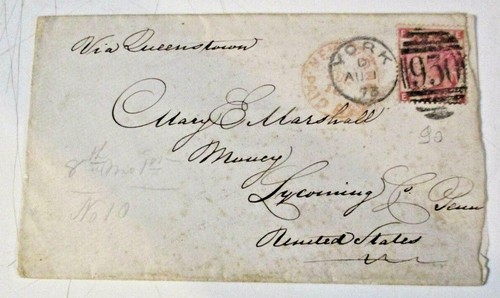 Via Queenstown
YORK
D
AU 21
73
930
Mary E. Marshall
Money
Lycoming C. Penn
United States
90
8th
No 10